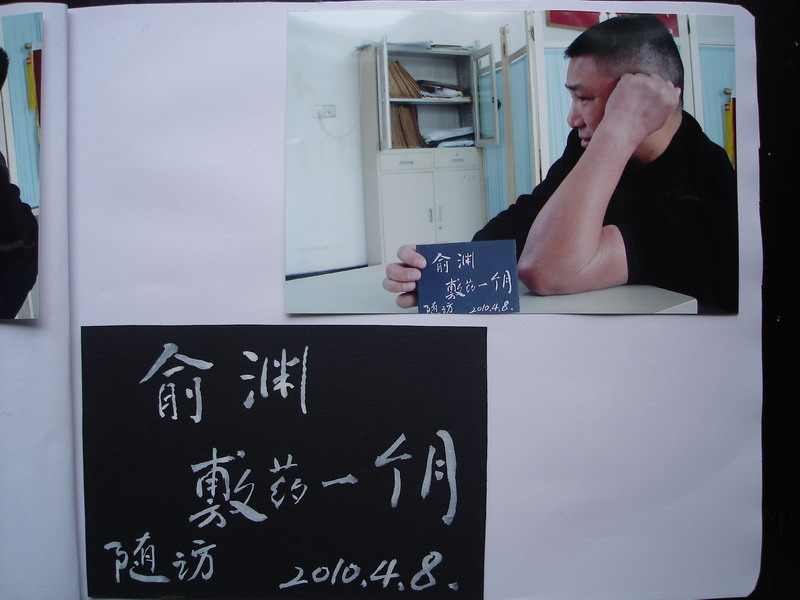 俞渊
敷药一个月
随访 2010.4.8.
俞渊
敷药一个月
随访 2010.4.8.